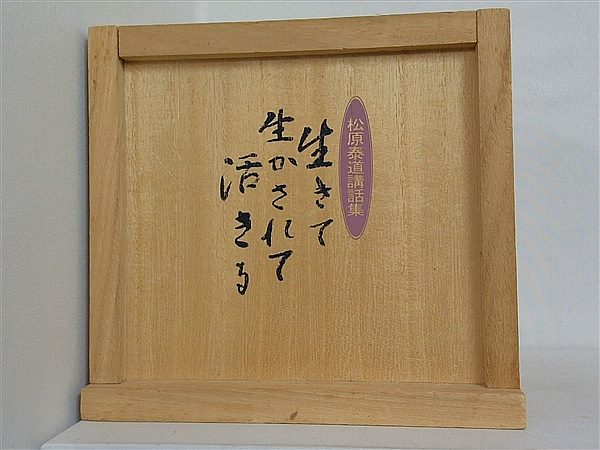 松原泰道講話集
生きて
生かされて
活きる